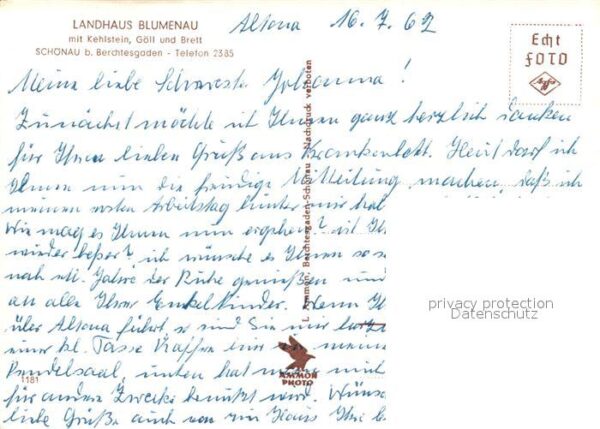 LANDHAUS BLUMENAU
mit Kehlstein, Göll und Brett
SCHÖNAU b. Berchtesgaden - Telefon 2385
Altona 16.7.62
Echt
FOTO
Agfa
Meine liebe Schwester Johanna!
Zunächst möchte ich Ihnen ganz herzlich danken
für Ihren lieben Gruß ans Krankenbett. Heut darf ich
Ihnen nun die freudige Mitteilung machen, daß ich
meinen ersten Arbeitstag hinter mir hab
Wie mag es Ihnen nun ergehen? ist Ih
wieder besser? ich wünsche es Ihnen so se
noch vll. Jahre der Ruhe genießen und
an allen Ihren Enkelkinder. Wenn Ih
über Altona führt so sind Sie mir
einer kl. Tasse Kaffee in mein
Pendelsaal, unten hat man mich
für andere Zwecke benützt wird. Wünsc
liebe Grüße auch von Haus Ihre
L. Ammon, Berchtesgaden-Schönau Nachdruck verboten
privacy protection
Datenschutz
AMMON
PHOTO
1181